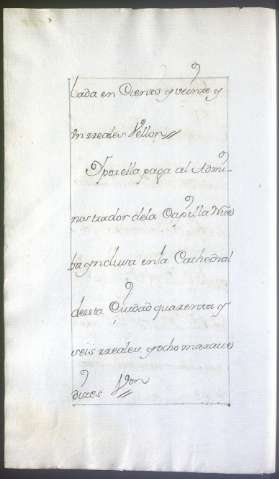 lada en Cientos y veinte y
un rreales Vellon
Y por ella paga al Admi-
nistrador dela Capilla Nues
ba ynclusa en la Cathedral
desta Ciudad quarenta y
seis rreales, y ocho marave
dizes Von